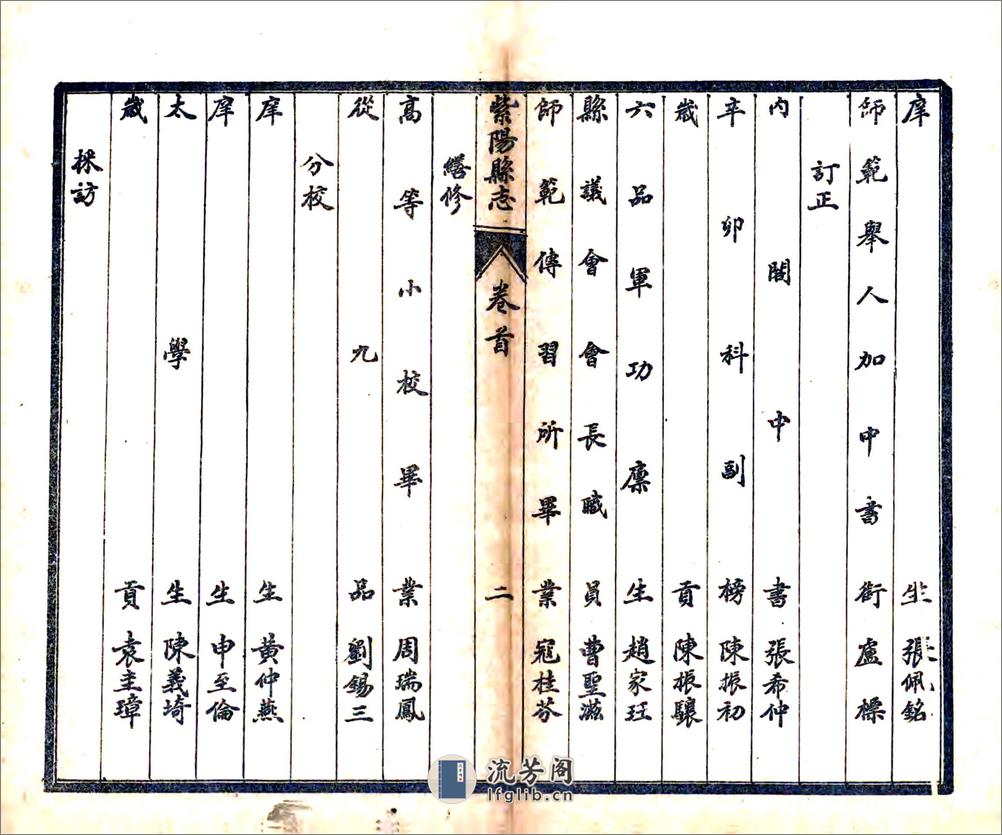 庠生張佩銘
師範舉人加中書銜盧標
訂正
內閣中書張希仲
辛卯科副榜陳振初
歲貢陳振驤
六品軍功廩生趙家珏
縣議會會長職員曹聖滋
師範傳習所畢業寇桂芬
紫陽縣志 卷首 二
繕修
高等小校畢業周瑞鳳
從九品劉錫三
分校
庠生黃仲燕
庠生申至倫
太學生陳義埼
歲貢袁圭璋
採訪
流芳阁
lfglib.cn